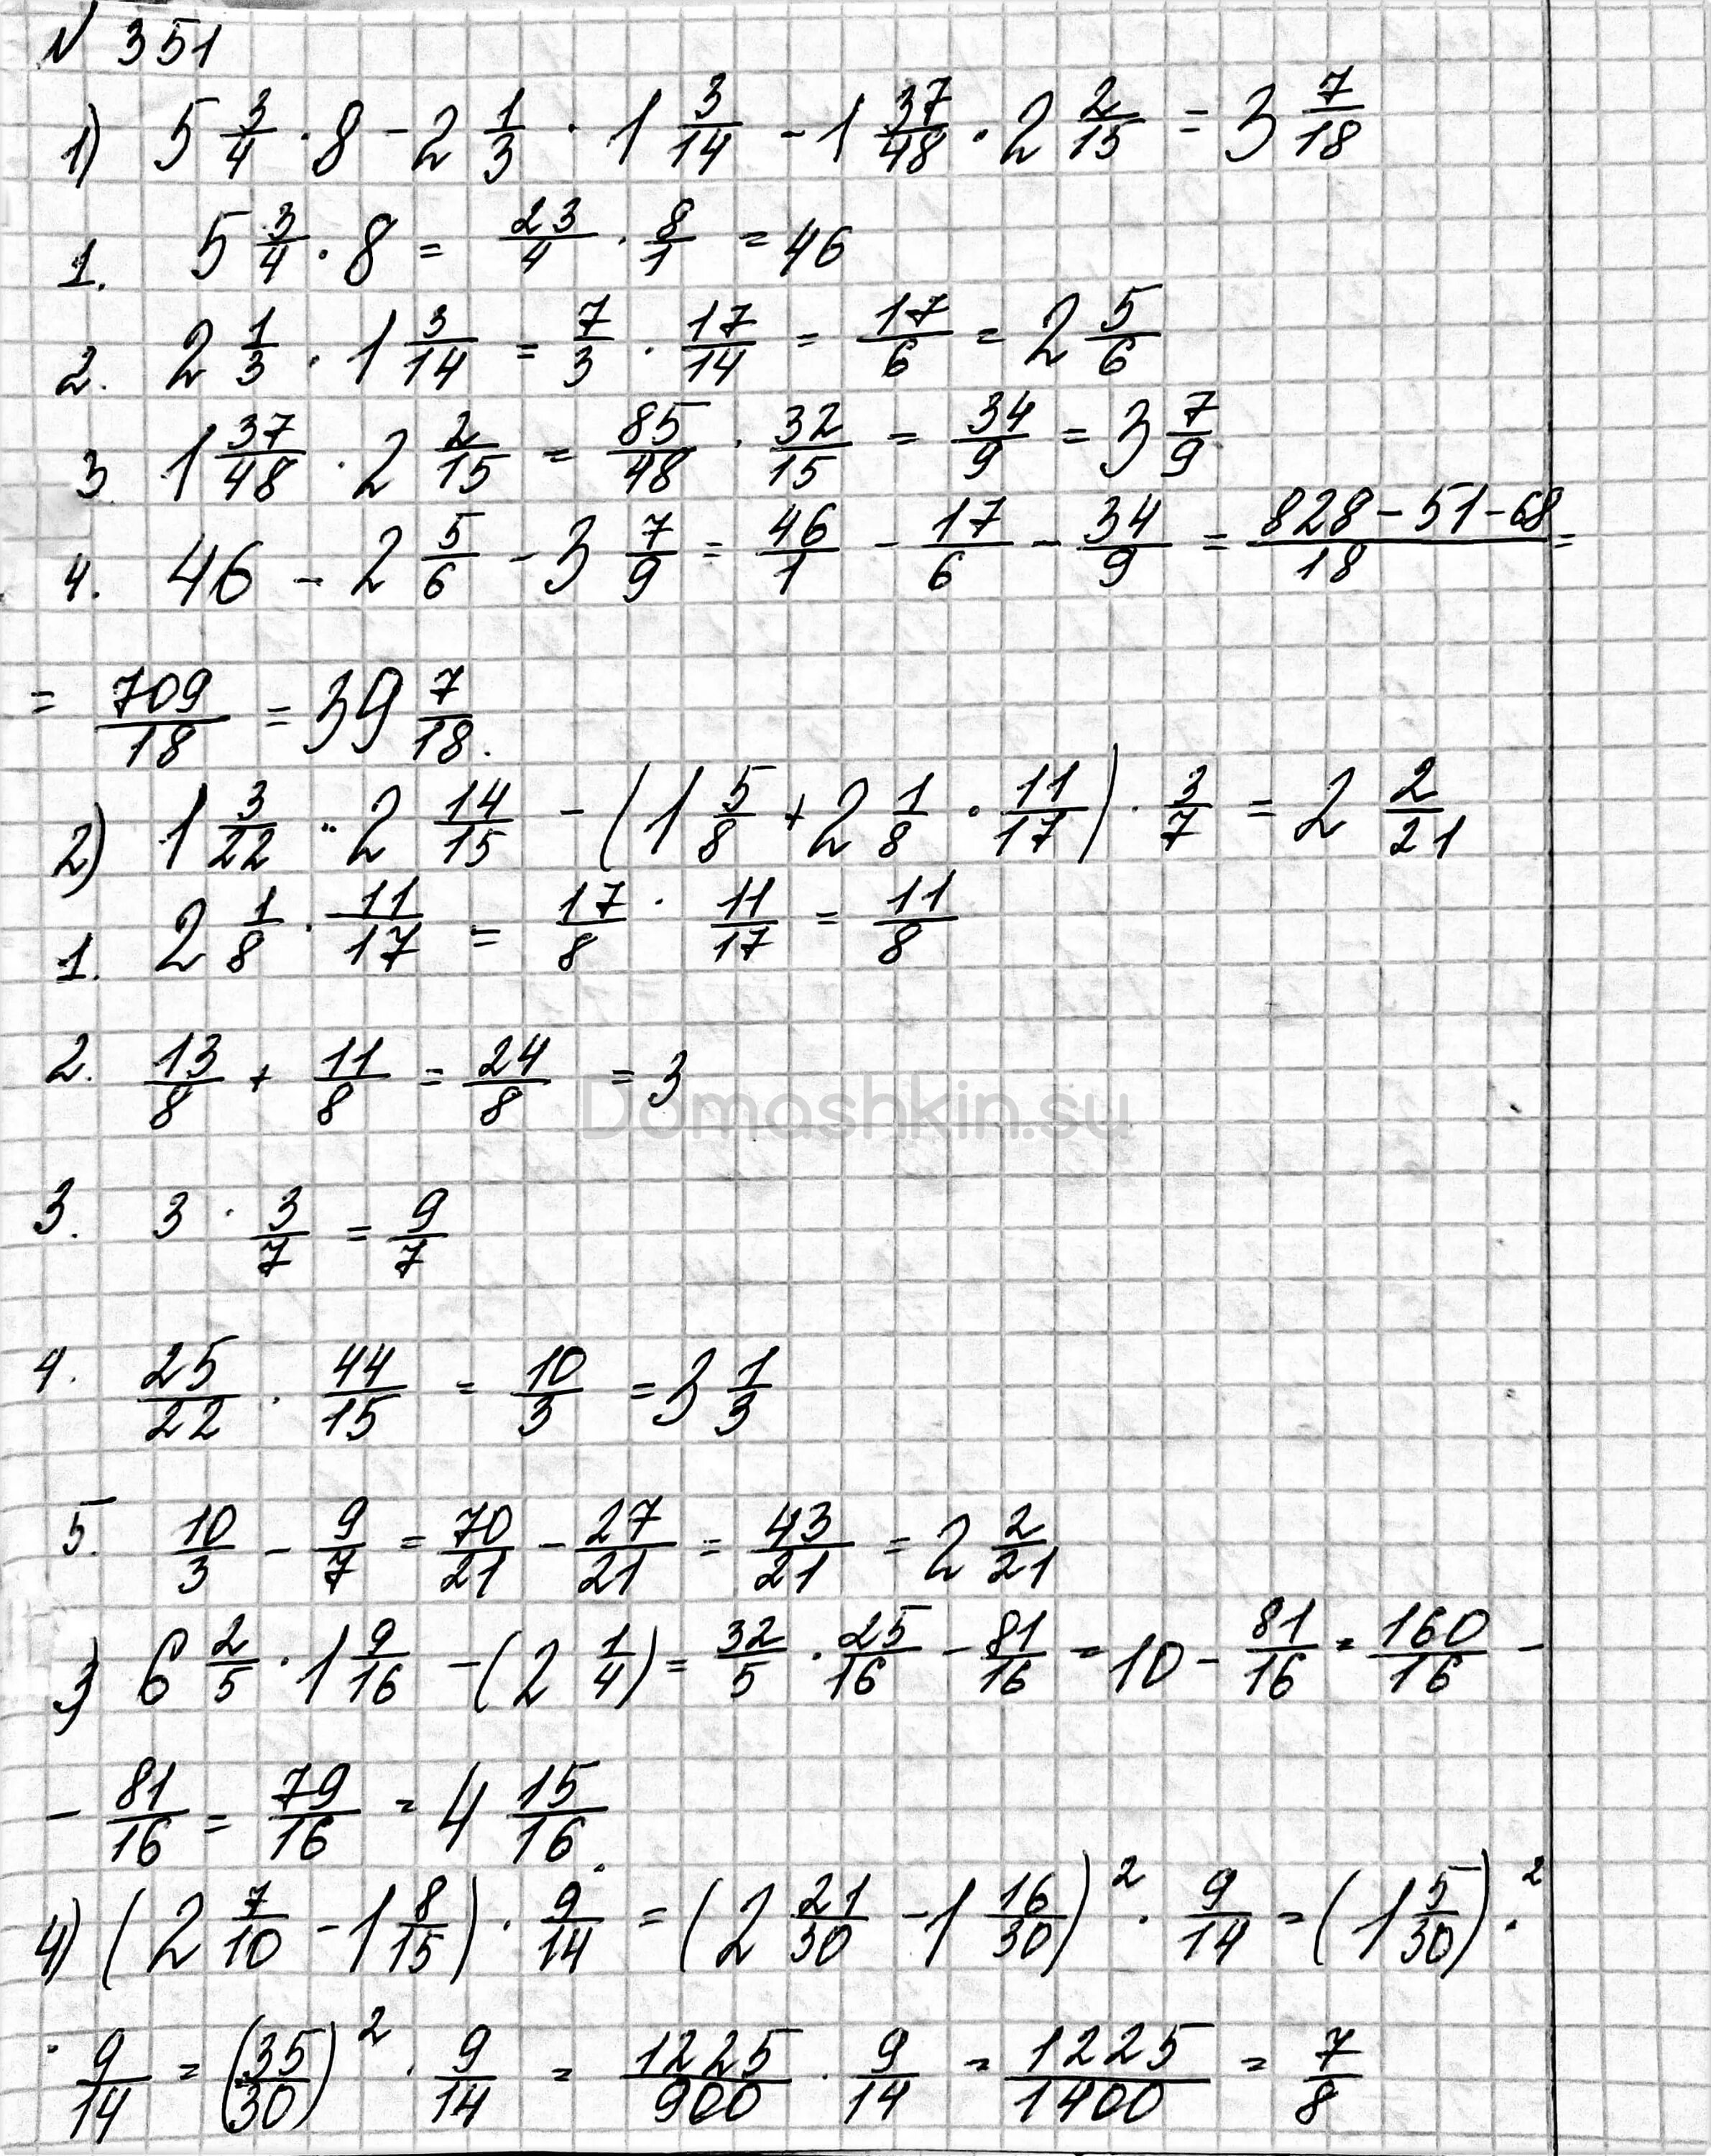 N 351
1) 5 3/4 · 8 - 2 1/3 · 1 3/14 - 1 37/48 · 2 2/15 = 3 7/18
1. 5 3/4 · 8 = 23/4 · 8/1 = 46
2. 2 1/3 · 1 3/14 = 7/3 · 17/14 = 17/6 = 2 5/6
3 1 37/48 · 2 2/15 = 85/48 · 32/15 = 34/9 = 3 7/9
4. 46 - 2 5/6 - 3 7/9 = 46/1 - 17/6 - 34/9 = (828-51-68)/18 =
= 709/18 = 39 7/18.
2) 1 3/22 · 2 14/15 - (1 5/8 + 2 1/8 · 11/17) · 3/7 = 2 2/21
1. 2 1/8 · 11/17 = 17/8 · 11/17 = 11/8
2. 13/8 + 11/8 = 24/8 = 3
Domashkin.su
3. 3 · 3/7 = 9/7
4. 25/22 · 44/15 = 10/3 = 3 1/3
5. 10/3 - 9/7 = 70/21 - 27/21 = 43/21 = 2 2/21
3) 6 2/5 · 1 9/16 - (2 1/4) = 32/5 · 25/16 - 81/16 = 10 - 81/16 = 160/16 -
- 81/16 = 79/16 = 4 15/16.
4) (2 7/10 - 1 8/15) · 9/14 = (2 21/30 - 1 16/30)² · 9/14 = (1 5/30)² ·
· 9/14 = (35/30)² · 9/14 = 1225/900 · 9/14 = 1225/1400 = 7/8